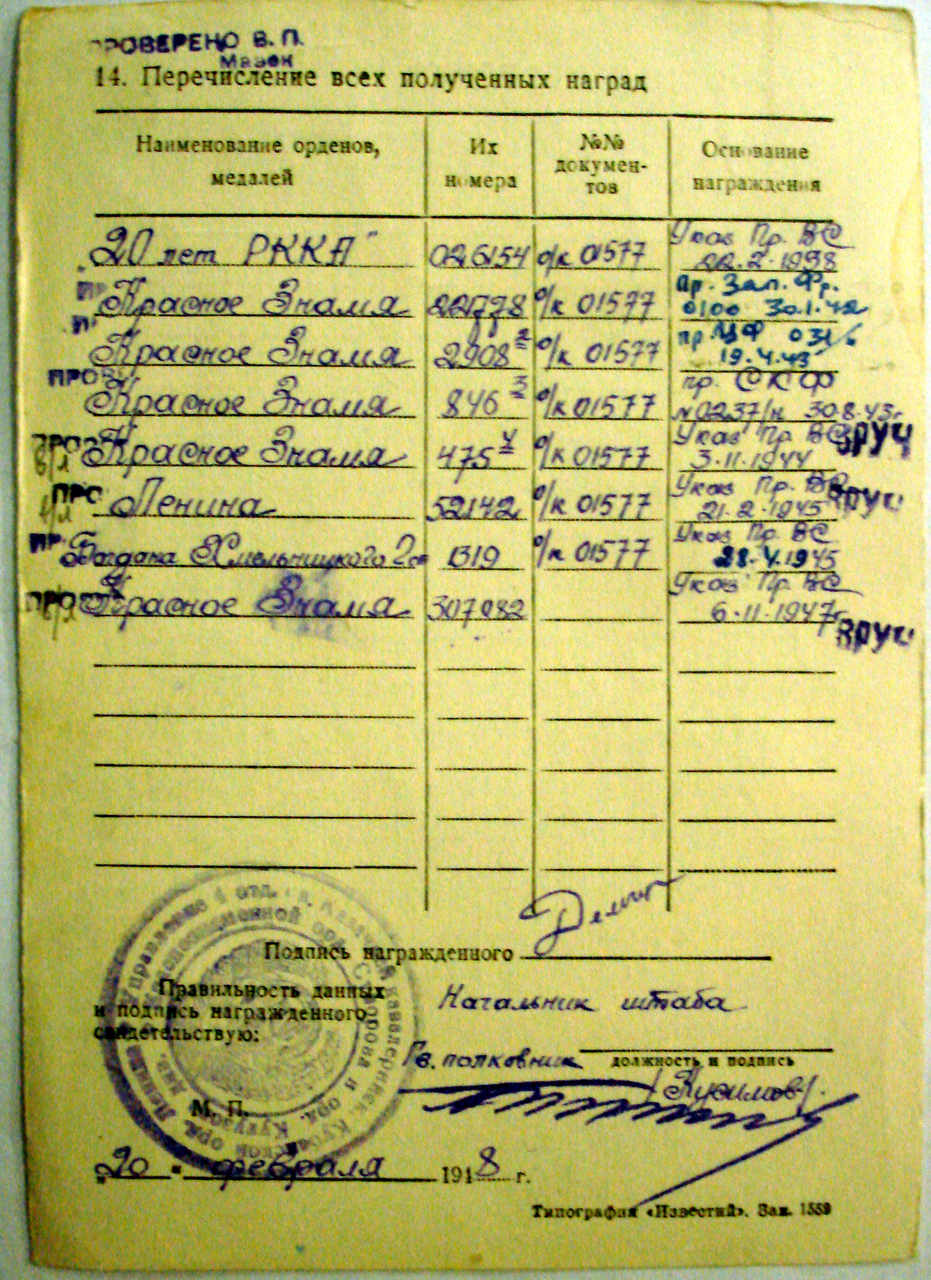 ПРОВЕРЕНО В. П.
14. Перечисление всех полученных наград
Наименование орденов, медалей
Их номера
№№ документов
Основание награждения
„20 лет РККА" 026154 о/к 01577 Указ Пр. ВС 22.2.1938
Красное Знамя 22778 о/к 01577 Пр. Зап. Фр. 0100 30.1.42
Красное Знамя 2908² о/к 01577 пр. 19.4.43
Красное Знамя 846³ о/к 01577 пр. СКФ №0237/н 30.8.43г
Красное Знамя 475⁴ о/к 01577 Указ Пр. ВС 3.11.1944 ВРУЧ
Ленина 52142 о/к 01577 Указ Пр. ВС 21.2.1945 ВРУЧ
Богдана Хмельницкого 2 ст 1319 о/к 01577 Указ Пр. ВС 28.4.1945
Красное Знамя 307082 Указ Пр. ВС 6.11.1947г ВРУЧ
Подпись награжденного
Правильность данных
и подпись награжденного
свидетельствую:
Начальник штаба
Гв. полковник
должность и подпись
/Кусимов/
М. П.
„20" февраля 1948 г.
Типография «Известий». Зак. 1559